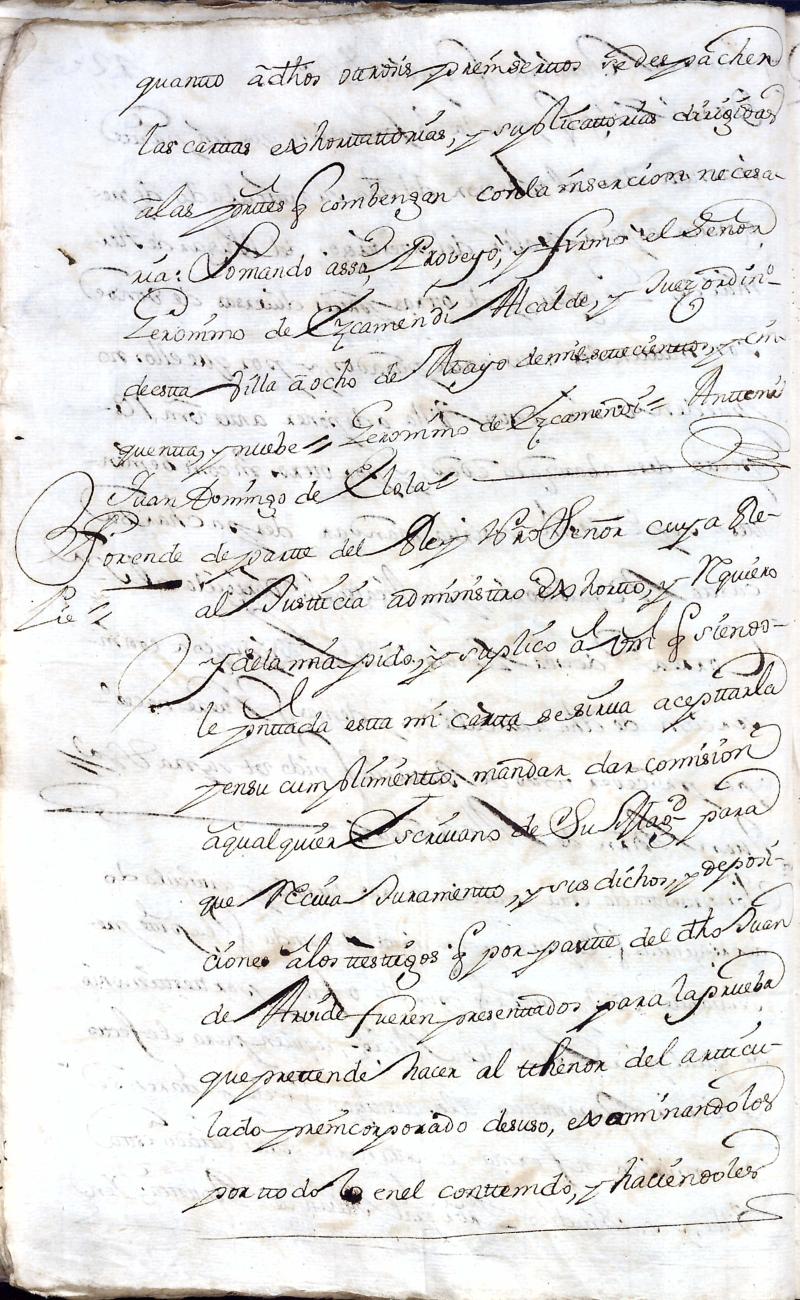 quanto a dhos otrosis preinsertos se despachen
las cartas exhortatorias, y suplicatorias dirigidas
a las partes q combengan con la insercion necesa-
ria: Lo mando assi, Proveyó, y firmó el Señor
Geronimo de Ezcamendi Alcalde, y Juez ordin.o
de esta Villa a ocho de Mayo de mil setecientos, y cin
quenta, y nuebe = Geronimo de Ezcamendi = Antemi
Juan Domingo de Elola =
Porende de parte del Rey Nro Señor cuya Re-
Pie =
al Justicia administro exhorto, y Rquiero
y de la mia pido, y suplico a Vm q siendo-
le pntada esta mi carta se sirva aceptarla
y en su cumplimiento, mandar dar comision
a qualquier Escrivano de Su Magd para
que Reciva Juramento, y sus dichos, y deposi-
ciones a los testigos q por parte del dho Juan
de Arvide fueren presentados para la prueba
que pretende hacer al thenor del articu-
lado preincorporado desuso, examinandolos
por todo lo en el contenido, y haciendoles